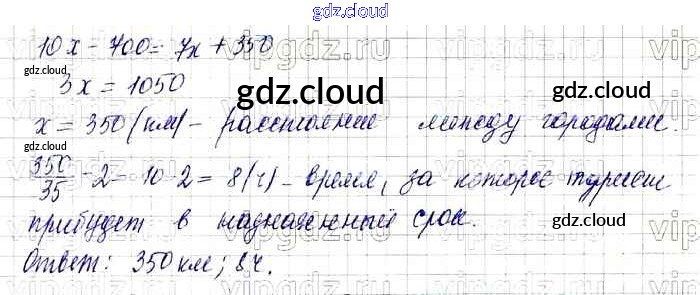 gdz.cloud
10x - 700 = 7x + 350
gdz.cloud gdz.cloud
3x = 1050
gdz.cloud
x = 350 (км) - расстояние между городами.
gdz.cloud gdz.cloud
350/35 - 2 = 10 - 2 = 8 (ч) - время, за которое турист
прибудет в назначенный срок.
gdz.cloud gdz.cloud
Ответ: 350 км; 8 ч.